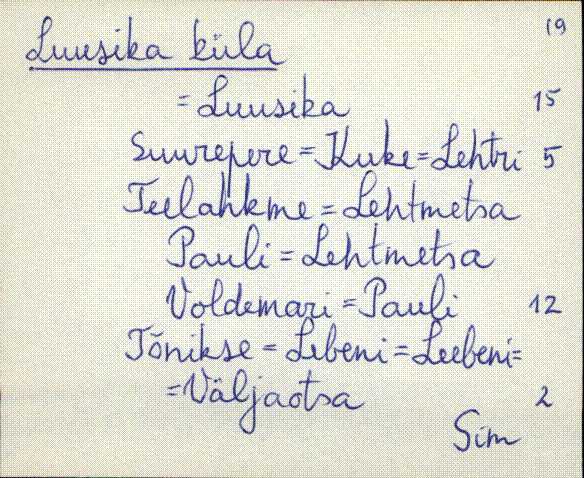 19
Luusika küla
= Luusika 15
Suurepere = Kuke = Lehtri 5
Teelahkme = Lehtmetsa
Pauli = Lehtmetsa
Voldemari = Pauli 12
Tõnikse = Lebeni = Leebeni =
= Väljaotsa 2
Sim